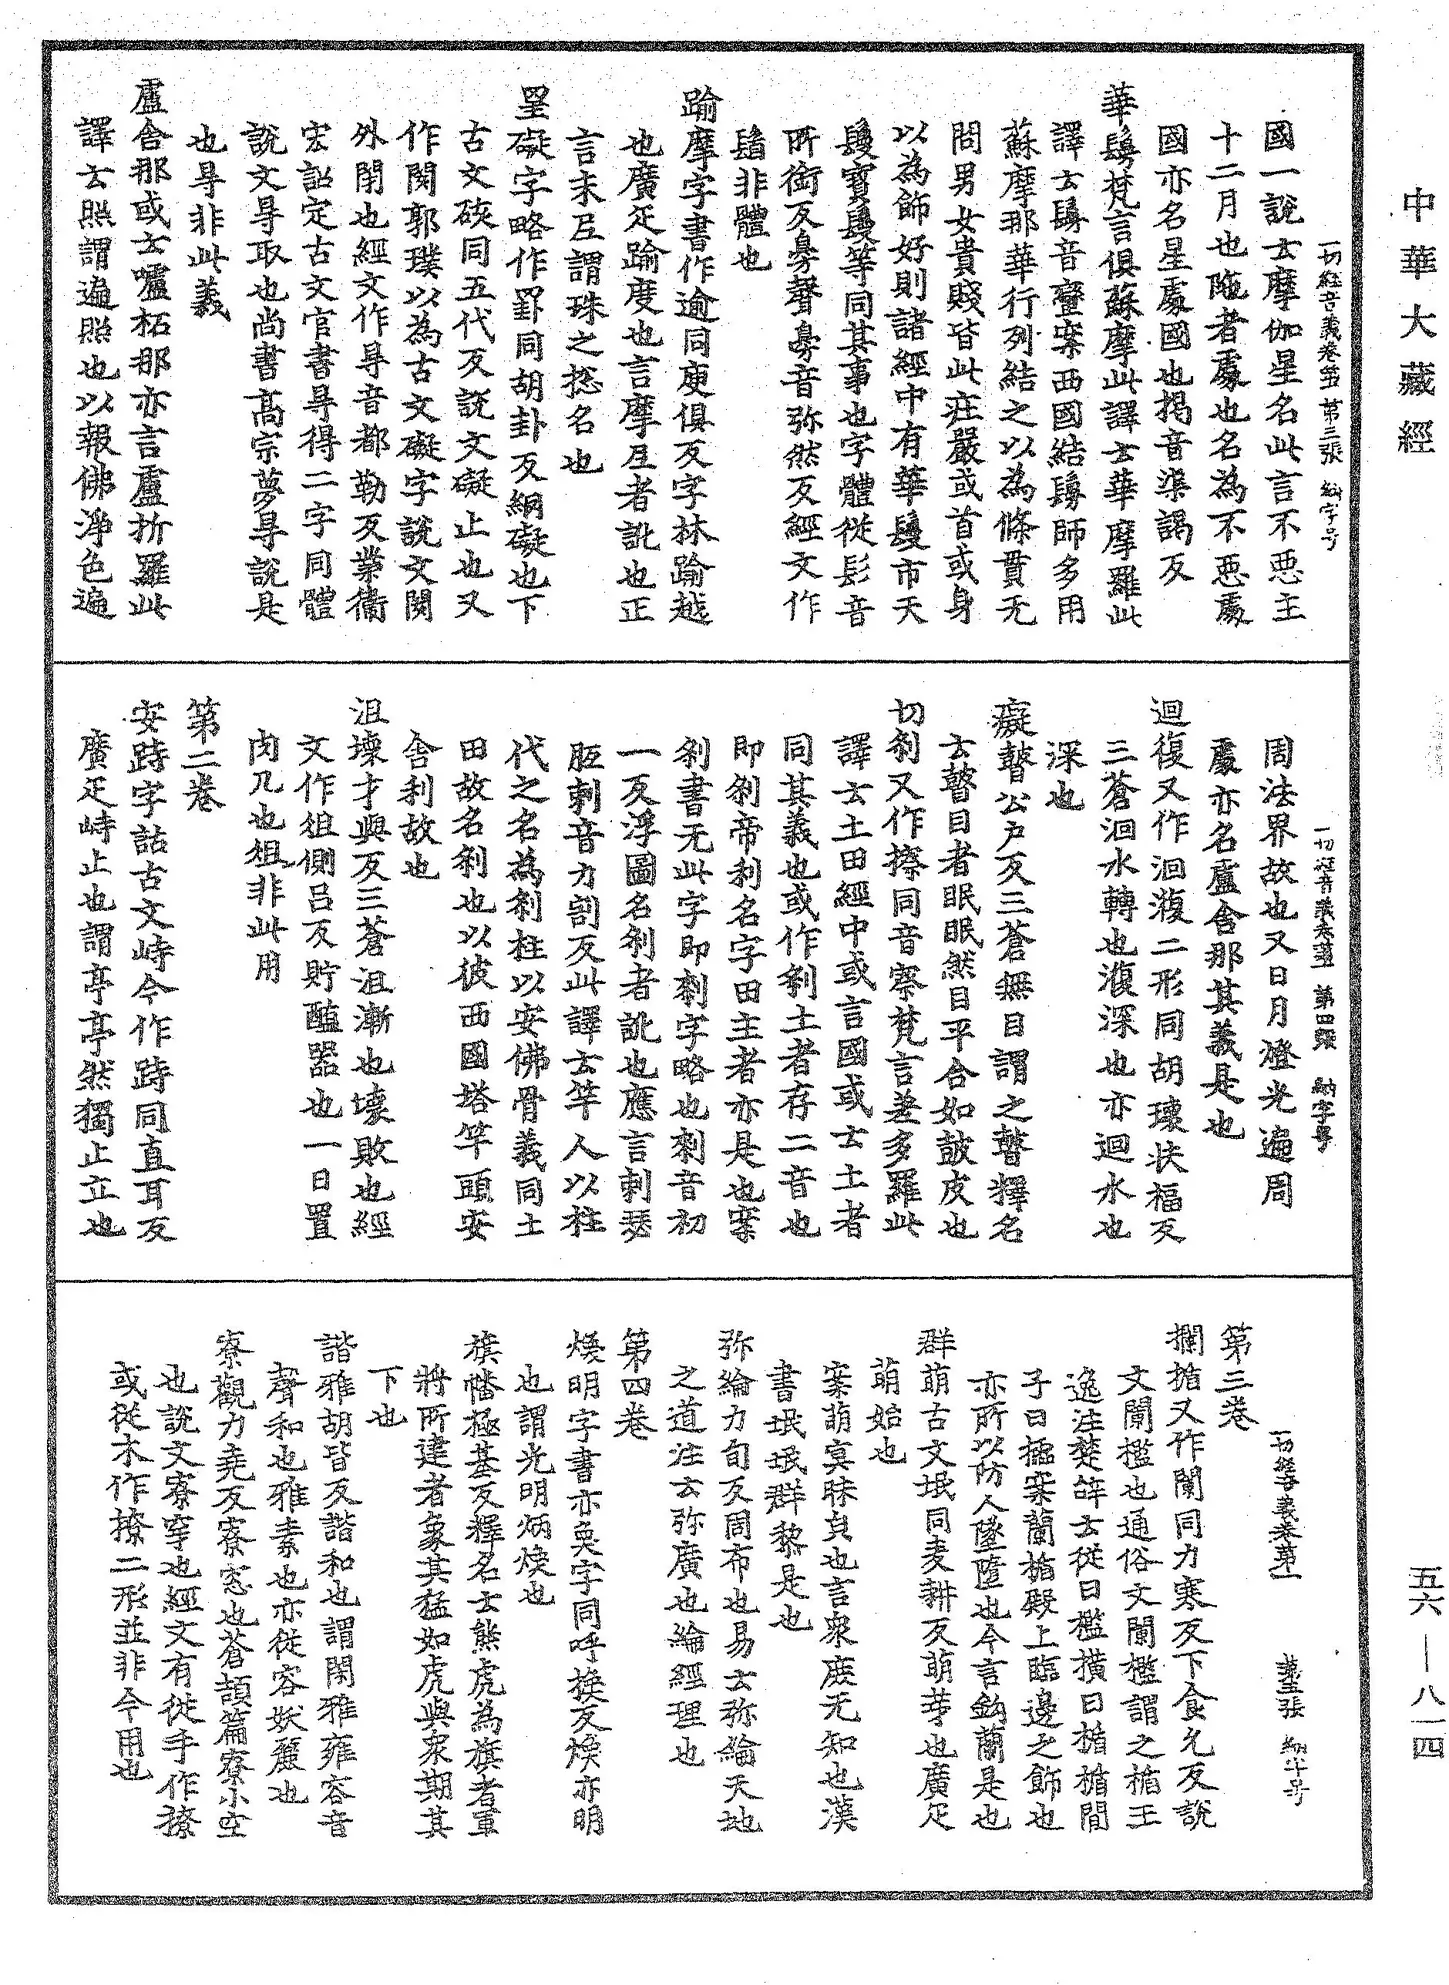 中華大藏經
一切經音義卷第一 第三張 納字号
國一說云摩伽星名此言不恶主
十二月也陁者處也名為不恶處
國亦名星處國也揭音渠謁反
華鬘梵言俱蘇摩此譯云華摩羅此
譯云鬘音蠻案西國結鬘師多用
蘇摩那華行列結之以為條貫无
問男女貴賤皆此庄嚴或首或身
以為飾好則諸經中有華鬘市天
鬘寶鬘等同其事也字體從髟音
所銜反臱聲臱音弥然反經文作
鬘非體也
踰摩字書作逾同庾俱反字林踰越
也廣疋踰度也言摩𡰱者訛也正
言末𡰱謂珠之揔名也
罣礙字略作罫同胡卦反網礙也下
古文硋同五代反說文礙止也又
作閡郭璞以為古文礙字說文閡
外閉也經文作㝵音都勒反案衞
宏詔定古文官書㝵得二字同體
說文㝵取也尚書高宗夢㝵說是
也㝵非此義
盧舍那或云嚧柘那亦言盧折羅此
譯云照謂遍照也以報佛淨色遍
一切經音義卷第一 第四張 納字号
周法界故也又日月燈光遍周一
處亦名盧舍那其義是也
迴復又作洄澓二形同胡瓌扶福反
三蒼洄水轉也澓深也亦迴水也
深也
癡瞽公户反三蒼無目謂之瞽釋名
云瞽目者眠眠然目平合如皷皮也
切剎又作擦同音察梵言差多羅此
譯云土田經中或言國或云土者
同其義也或作剎土者存二音也
即剎帝利名字田主者亦是也案
剎書无此字即刺字略也刺音初
一反浮圖名剎者訛也應言刺瑟
胝刺音力割反此譯云竿人以柱
代之名為剎柱以安佛骨義同土
田故名剎也以彼西國塔竿頭安
舍利故也
沮壞才與反三蒼沮漸也壞敗也經
文作俎側吕反貯醢器也一曰置
肉几也俎非此用
第二卷
安跱字詁古文峙今作跱同直耳反
廣疋峙止也謂亭亭然獨止立也
一切經音義卷第一 第五張 納字号
第三卷
攔楯又作闌同力寒反下食允反說
文闌檻也通俗文闌檻謂之楯王
逸注楚辝云從曰檻橫曰楯楯間
子曰櫺案蘭楯殿上臨邊之飾也
亦所以防人墜墮也今言鈎蘭是也
群萌古文氓同麦耕反萌芽也廣疋
萌始也
案萌冥昧皃也言衆庶无知也漢
書氓氓群黎是也
弥綸力旬反周布也易云弥綸天地
之道注云弥廣也綸經理也
第四卷
煥明字書亦奐字同呼換反煥亦明
也謂光明炳煥也
旗幡極基反釋名云熊虎為旗者軍
將所建者象其猛如虎與衆期其
下也
諧雅胡皆反諧和也謂閑雅雍容音
聲和也雅素也亦從容妖麗也
寮觀力堯反寮窓也蒼頡篇寮小空
也說文寮穿也經文有從手作撩
或從木作橑二形並非今用也
五六—八一四